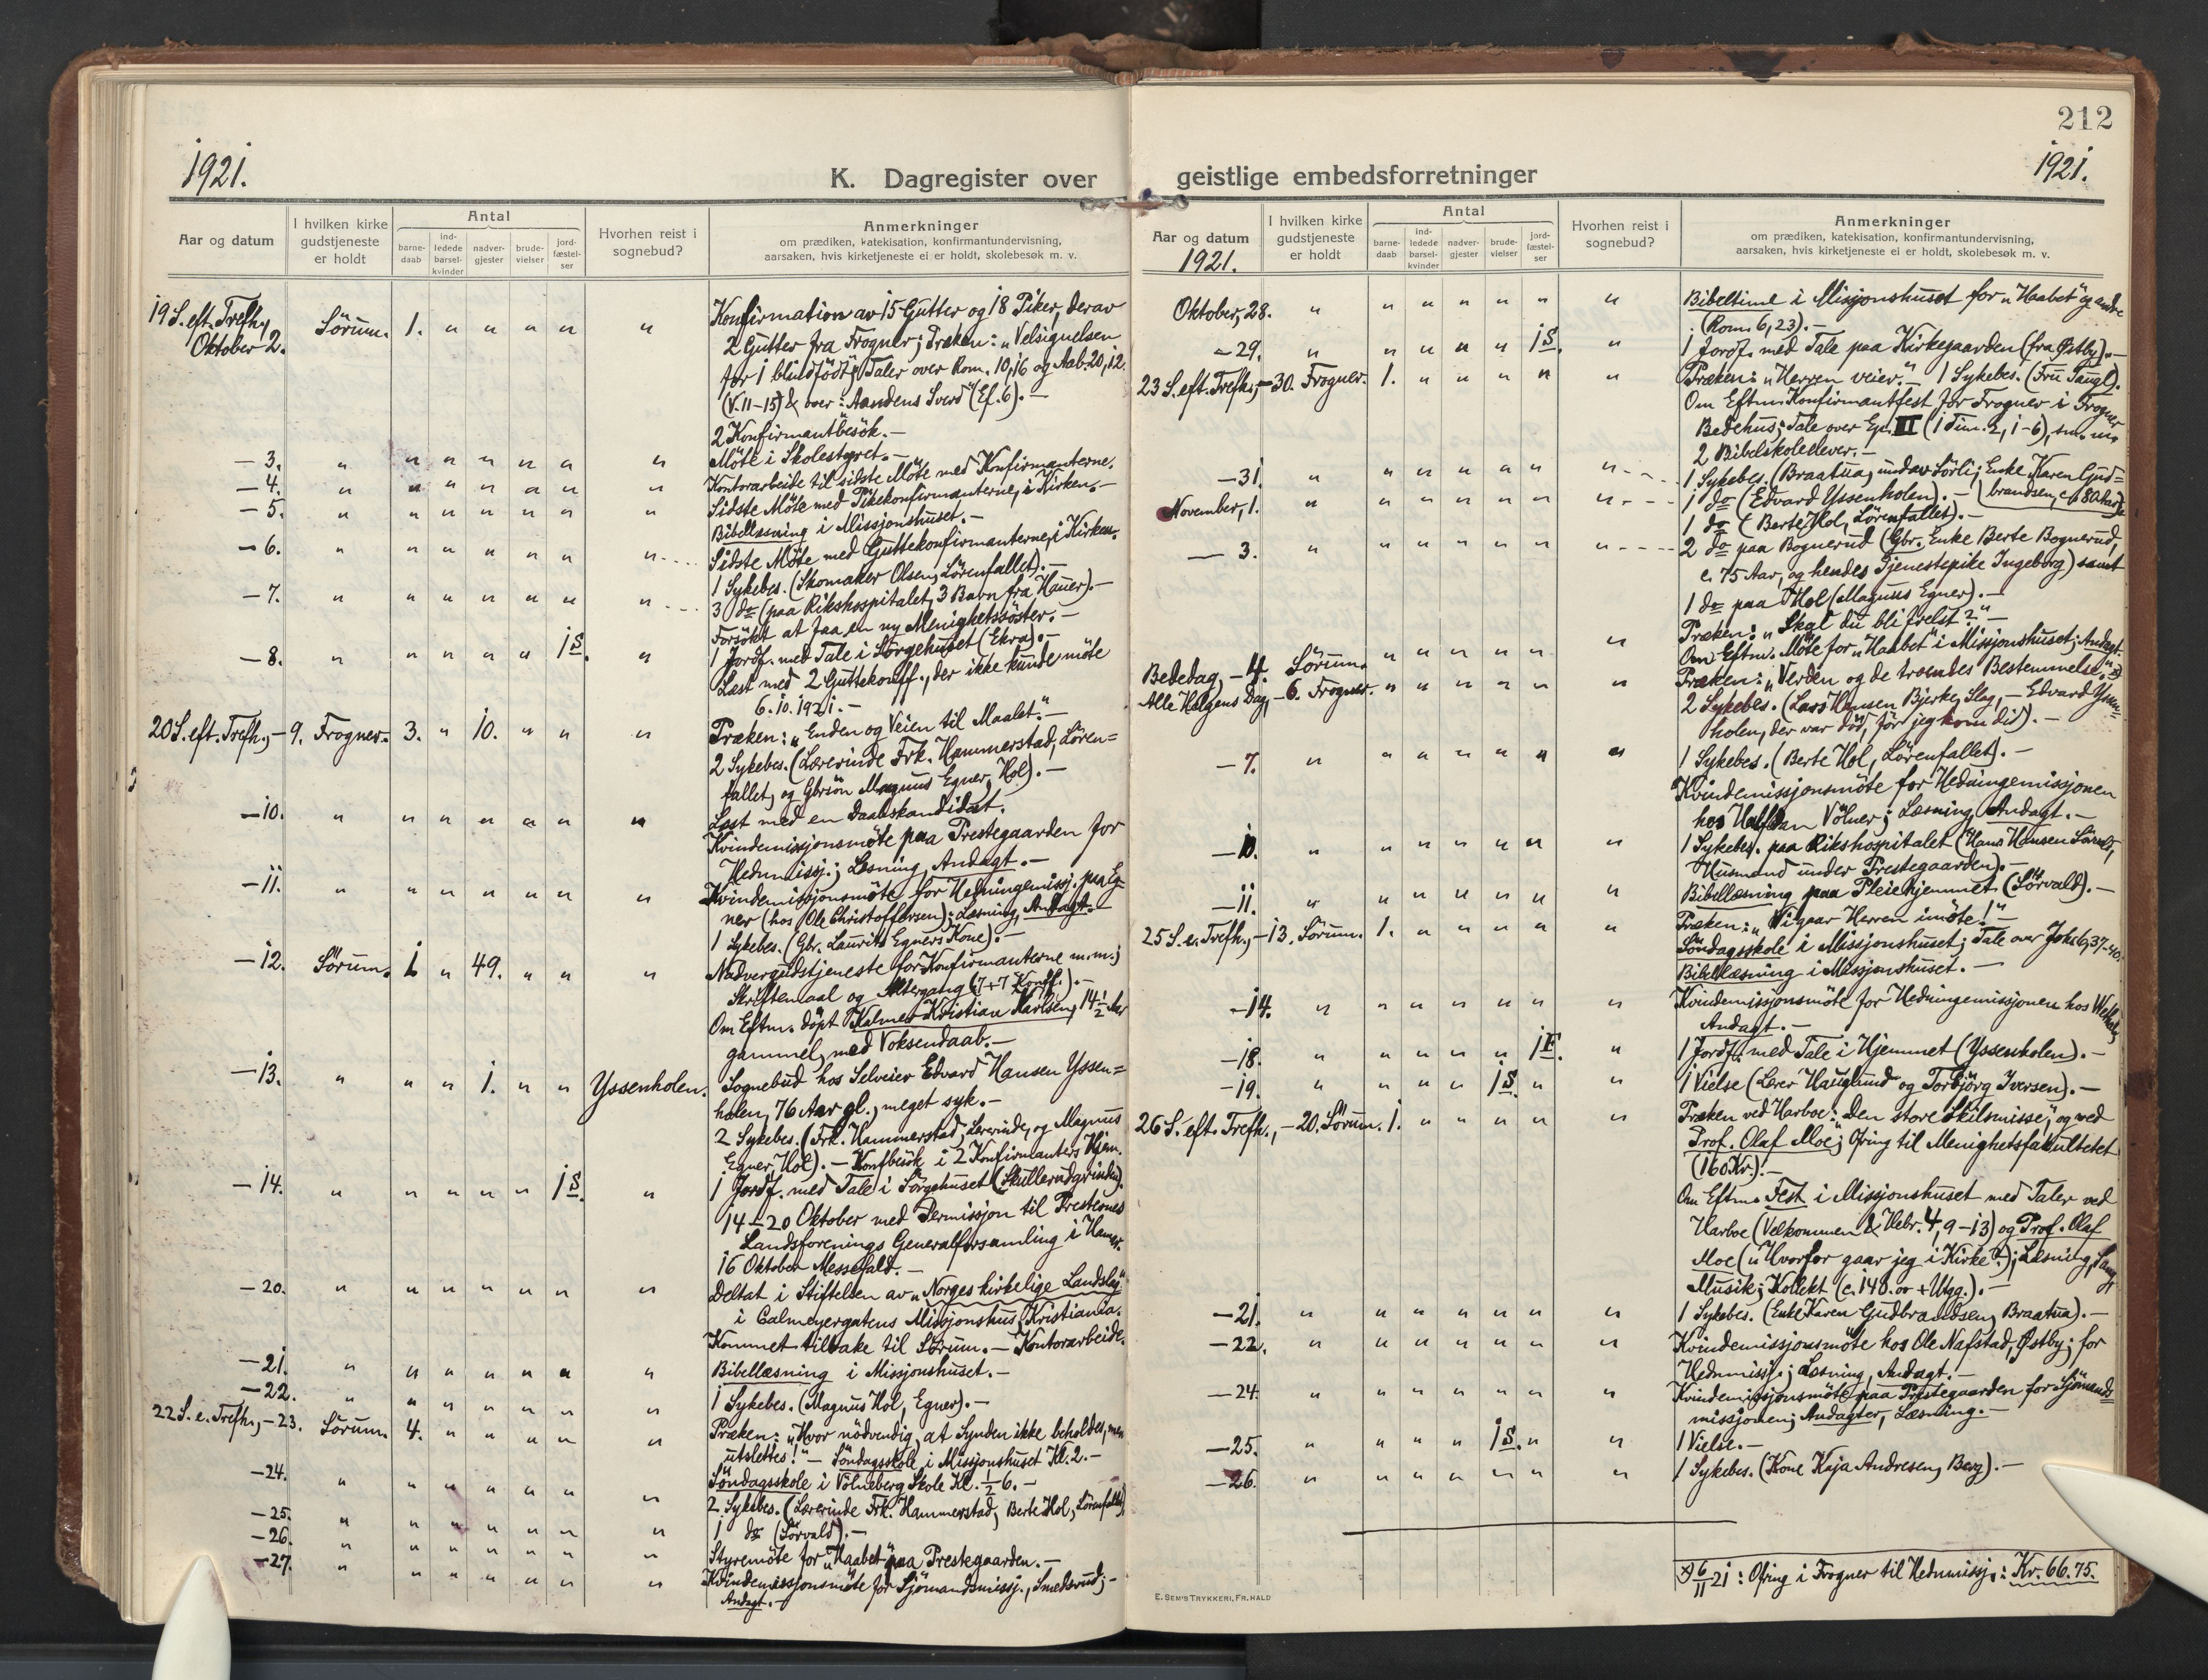 212
1921.
1921.
K. Dagregister over geistlige embedsforretninger
Aar og datum
I hvilken kirke gudstjeneste er holdt
Antal
barne-daab
ind-ledede barsel-kvinder
nadver-gjester
brude-vielser
jord-fæstel-ser
Hvorhen reist i sognebud?
Anmerkninger
om prædiken, katekisation, konfirmantundervisning,
aarsaken, hvis kirketjeneste ei er holdt, skolebesøk m. v.
19 S. eft. Trefh.,
Oktober 2. Sörum. 1. " " " " " Konfirmation av 15 Gutter og 18 Piker, derav
2 Gutter fra Frogner; Præken: "Velsignelsen
for 1 blindfödt"; Taler over Rom. 10,16 og Aab. 20,12.
(V. 11-15) & over: "Aandens Sverd" (Ef. 6). —
2 Konfirmantbesök. —
— 3. " " " " " " " Möte i Skolestyret. —
— 4. " " " " " " " Kontorarbeide til sidste Möte med Konfirmanterne.
— 5. " " " " " " " Sidste Möte med Pikekonfirmanterne, i Kirken. —
Bibellæsning i Missjonshuset. —
— 6. " " " " " " " Sidste Möte med Guttekonfirmanterne, i Kirken.
1 Sykebes. (Skomaker Olsen, Lörenfallet). —
— 7. " " " " " " " 3 do (paa Rikshospitalet, 3 Barn fra Hauer). —
Forsökt at faa en ny Menighetssöster. —
— 8. " " " " " 1 S. " 1 Jordf. med Tale i Sörgehuset (Ekra). —
Læst med 2 Guttekonff., der ikke kunde möte
6.10.1921. —
20 S. eft. Trefh., — 9. Frogner. 3. " 10. " " " Præken: "Enden og Veien til Maalet." —
2 Sykebes. (Lærerinde Frk. Hammerstad, Lören=
fallet, og Gbrsön Magnus Egner, Hol). —
— 10. " " " " " " " Læst med en Daabskandidat.
Kvindemissjonsmöte paa Prestegaarden for
Hednmissj.; Læsning, Andagt. —
— 11. " " " " " " " Kvindemissjonsmöte for Hedningemissj. paa Eg=
ner (hos Ole Christoffersen); Læsning, Andagt. —
1 Sykebes. (Gbr. Laurits Egners Kone). —
— 12. Sörum. 1. " 49. " " " Nadvergudstjeneste for Konfirmanterne m.m.;
Skriftemaal og Altergang (7+7 Konff.). —
Om Eftm. döpt Kalmer Kristian Karlsen, 14 1/2 Aar
gammel, med Voksendaab. —
— 13. " " " 1. " " Yssenholen. Sognebud hos Selveier Edvard Hansen Yssen=
holen, 76 Aar gl., meget syk. —
2 Sykebes. (Frk. Hammerstad, Lærerinde, og Magnus
Egner, Hol). — Konfbesök i 2 Konfirmanters Hjem.
— 14. " " " " " 1 S. " 1 Jordf. med Tale i Sörgehuset (Skullerudgrinden).
14 — 20 Oktober med Permissjon til Presternes
Landsforenings Generalforsamling i Hamar.
16 Oktober Messefald. —
— 20. " " " " " " " Deltat i Stiftelsen av "Norges kirkelige Landslag"
i Calmeyergatens Missjonshus, Kristiania.
Kommet tilbake til Sörum. — Kontorarbeide.
— 21. " " " " " " " Bibellæsning i Missjonshuset. —
— 22. " " " " " " " 1 Sykebes. (Magnus Hol, Egner). —
22 S. e. Trefh., — 23. Sörum. 4. " " " " " Præken: "Hvor nödvendig, at Synden ikke beholdes, men
utslettes!" — Söndagsskole i Missjonshuset Kl. 2. —
Söndagsskole i Völneberg Skole Kl. 1/2 6. —
— 24. " " " " " " " 2 Sykebes. (Lærerinde Frk. Hammerstad; Berte Hol, Lörenfallet)
— 25. " " " " " " " 1 do (Sörvald). —
— 26. " " " " " " " Styremöte for "Haabet" paa Prestegaarden. —
— 27. " " " " " " " Kvindemissjonsmöte for Sjömandsmissj., Smedsrud; —
Andagt. —
Aar og datum
1921.
I hvilken kirke gudstjeneste er holdt
Antal
barne-daab
ind-ledede barsel-kvinder
nadver-gjester
brude-vielser
jord-fæstel-ser
Hvorhen reist i sognebud?
Anmerkninger
om prædiken, katekisation, konfirmantundervisning,
aarsaken, hvis kirketjeneste ei er holdt, skolebesøk m. v.
Oktober, 28. " " " " " " " Bibeltime i Missjonshuset for "Haabet" og andre
(Rom. 6,23). —
— 29. " " " " " 1 S. " 1 Jordf. med Tale paa Kirkegaarden (fra Østby). —
23 S. eft. Trefh., — 30. Frogner. 1. " " " " " Præken: "Herren veier." — 1 Sykebes. (Fru Taugl).
Om Eftm. Konfirmantfest for Frogner i Frogner
Bedehus; Tale over Ep. II (1 Tim. 2, 1-6),
2 Bibelskoleelever. —
— 31. " " " " " " " 1 Sykebes. (Braatua, under Sörli; Enke Karen Gud=
brandsen, c. 80 Aar).
November, 1. " " " " " " " 1 do (Edvard Yssenholen). —
1 do (Berte Hol, Lörenfallet). —
— 3. " " " " " " " 2 do paa Bognerud (Gbr. Enke Berte Bognerud,
c. 75 Aar, og hendes Tjenestepike Ingeborg) samt
1 do paa Hol (Magnus Egner). —
Bededag, — 4. Sörum. " " " " " " Præken: "Skal du bli frelst?" —
Om Eftm. Möte for "Haabet" i Missjonshuset; Andagt.
Alle Helgens Dag, — 6. Frogner. " " " " " " Præken: "Verden og de troendes Bestemmelse." x)
2 Sykebes. (Lars Hansen Bjerke, Slag, — Edvard Yssen=
holen, der var död, för jeg kom did). —
— 7. " " " " " " " 1 Sykebes. (Berte Hol, Lörenfallet). —
Kvindemissjonsmöte for Hedningemissjonen
hos Halfdan Völner; Læsning, Andagt. —
— 10. " " " " " " " 1 Sykebes. paa Rikshospitalet (Hans Hansen
Husmand under Prestegaarden). —
— 11. " " " " " " " Bibellæsning paa Pleiehjemmet (Sörvald). —
25 S. e. Trefh., — 13. Sörum. 1. " " " " " Præken: "Vi gaar Herren imöte!" —
Söndagsskole i Missjonshuset; Tale over Joh. 6,37-40.
Bibellæsning i Missjonshuset. —
— 14. " " " " " " " Kvindemissjonsmöte for Hedningemissjonen hos
Andagt. —
— 18. " " " " " 1 F. " 1 Jordf. med Tale i Hjemmet (Yssenholen). —
— 19. " " " " 1 S. " " 1 Vielse (Lærer Hauglund og Torbjörg Iversen). —
26 S. eft. Trefh., — 20. Sörum. 1. " " " " " Præken ved Harboe: "Den store Skilsmisse", og ved
Prof. Olaf Moe; Ofring til Menighetsfakultetet
(160 Kr.). —
Om Eftm. Fest i Missjonshuset med Taler ved
Harboe (Velkommen & Hebr. 4, 9-13) og Prof. Olaf
Moe ("Hvorfor gaar jeg i Kirke?"); Læsning, Sang,
Musik; Kollekt (c. 140.00 + Utgg.). —
— 21. " " " " " " " 1 Sykebes. (Enke Karen Gudbrandsen, Braatua). —
— 22. " " " " " " " Kvindemissjonsmöte hos Ole Nafstad, Østby; for
Hednmissj.; Læsning, Andagt. —
— 24. " " " " " " " Kvindemissjonsmöte paa Prestegaarden for Sjömands=
missjonen; Andagter, Læsning. —
— 25. " " " " 1 S. " " 1 Vielse. —
— 26. " " " " " " " 1 Sykebes. (Kone Kaja Andresen, Berg). —
x) 6/11 21: Ofring i Frogner til Hednmissj.: Kr. 66.75.
E. SEM'S TRYKKERI, FR.HALD